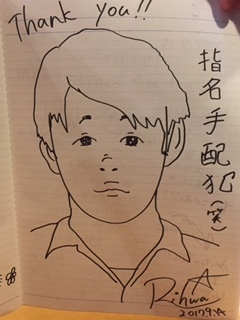 Thank you!!
指名手配犯(笑)
Rihwa
2017.9.